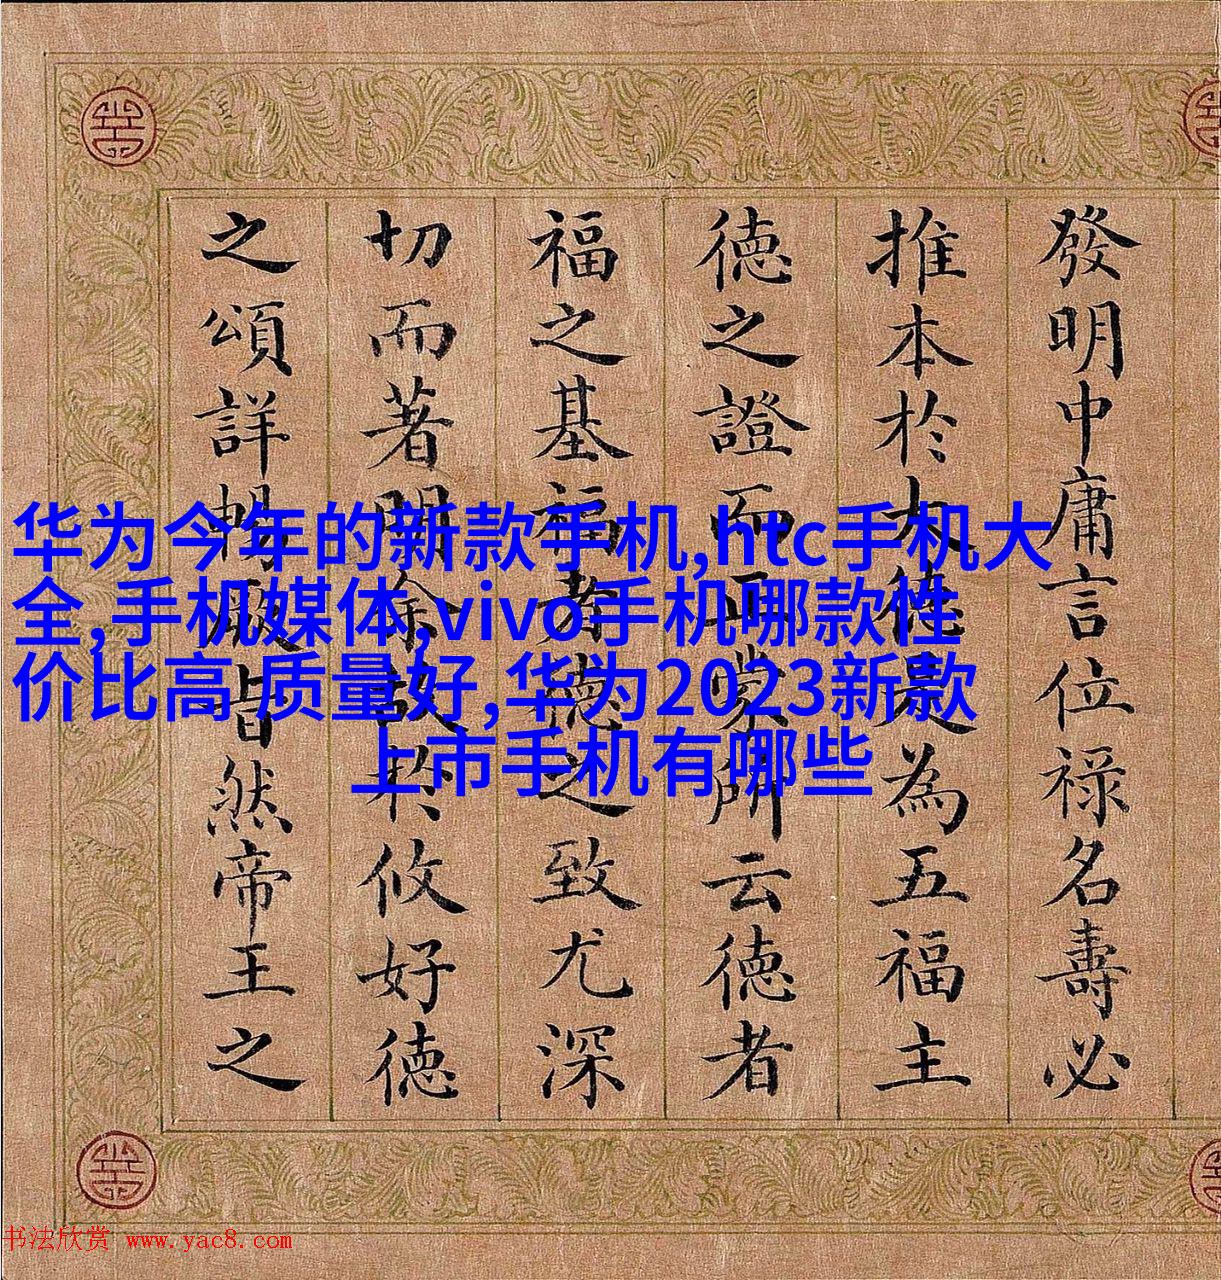 發明中庸言位祿名壽必
推本於大德是為五福主
德之證而正蒙所云德者
福之基福者德之致尤深
切而著明余故於攸好德
之頌詳暢厥旨然帝王之
华为今年的新款手机,htc手机大
全,手机媒体,vivo手机哪款性
价比高 质量好,华为2023新款
上市手机有哪些
书法欣赏 www.yac8.com